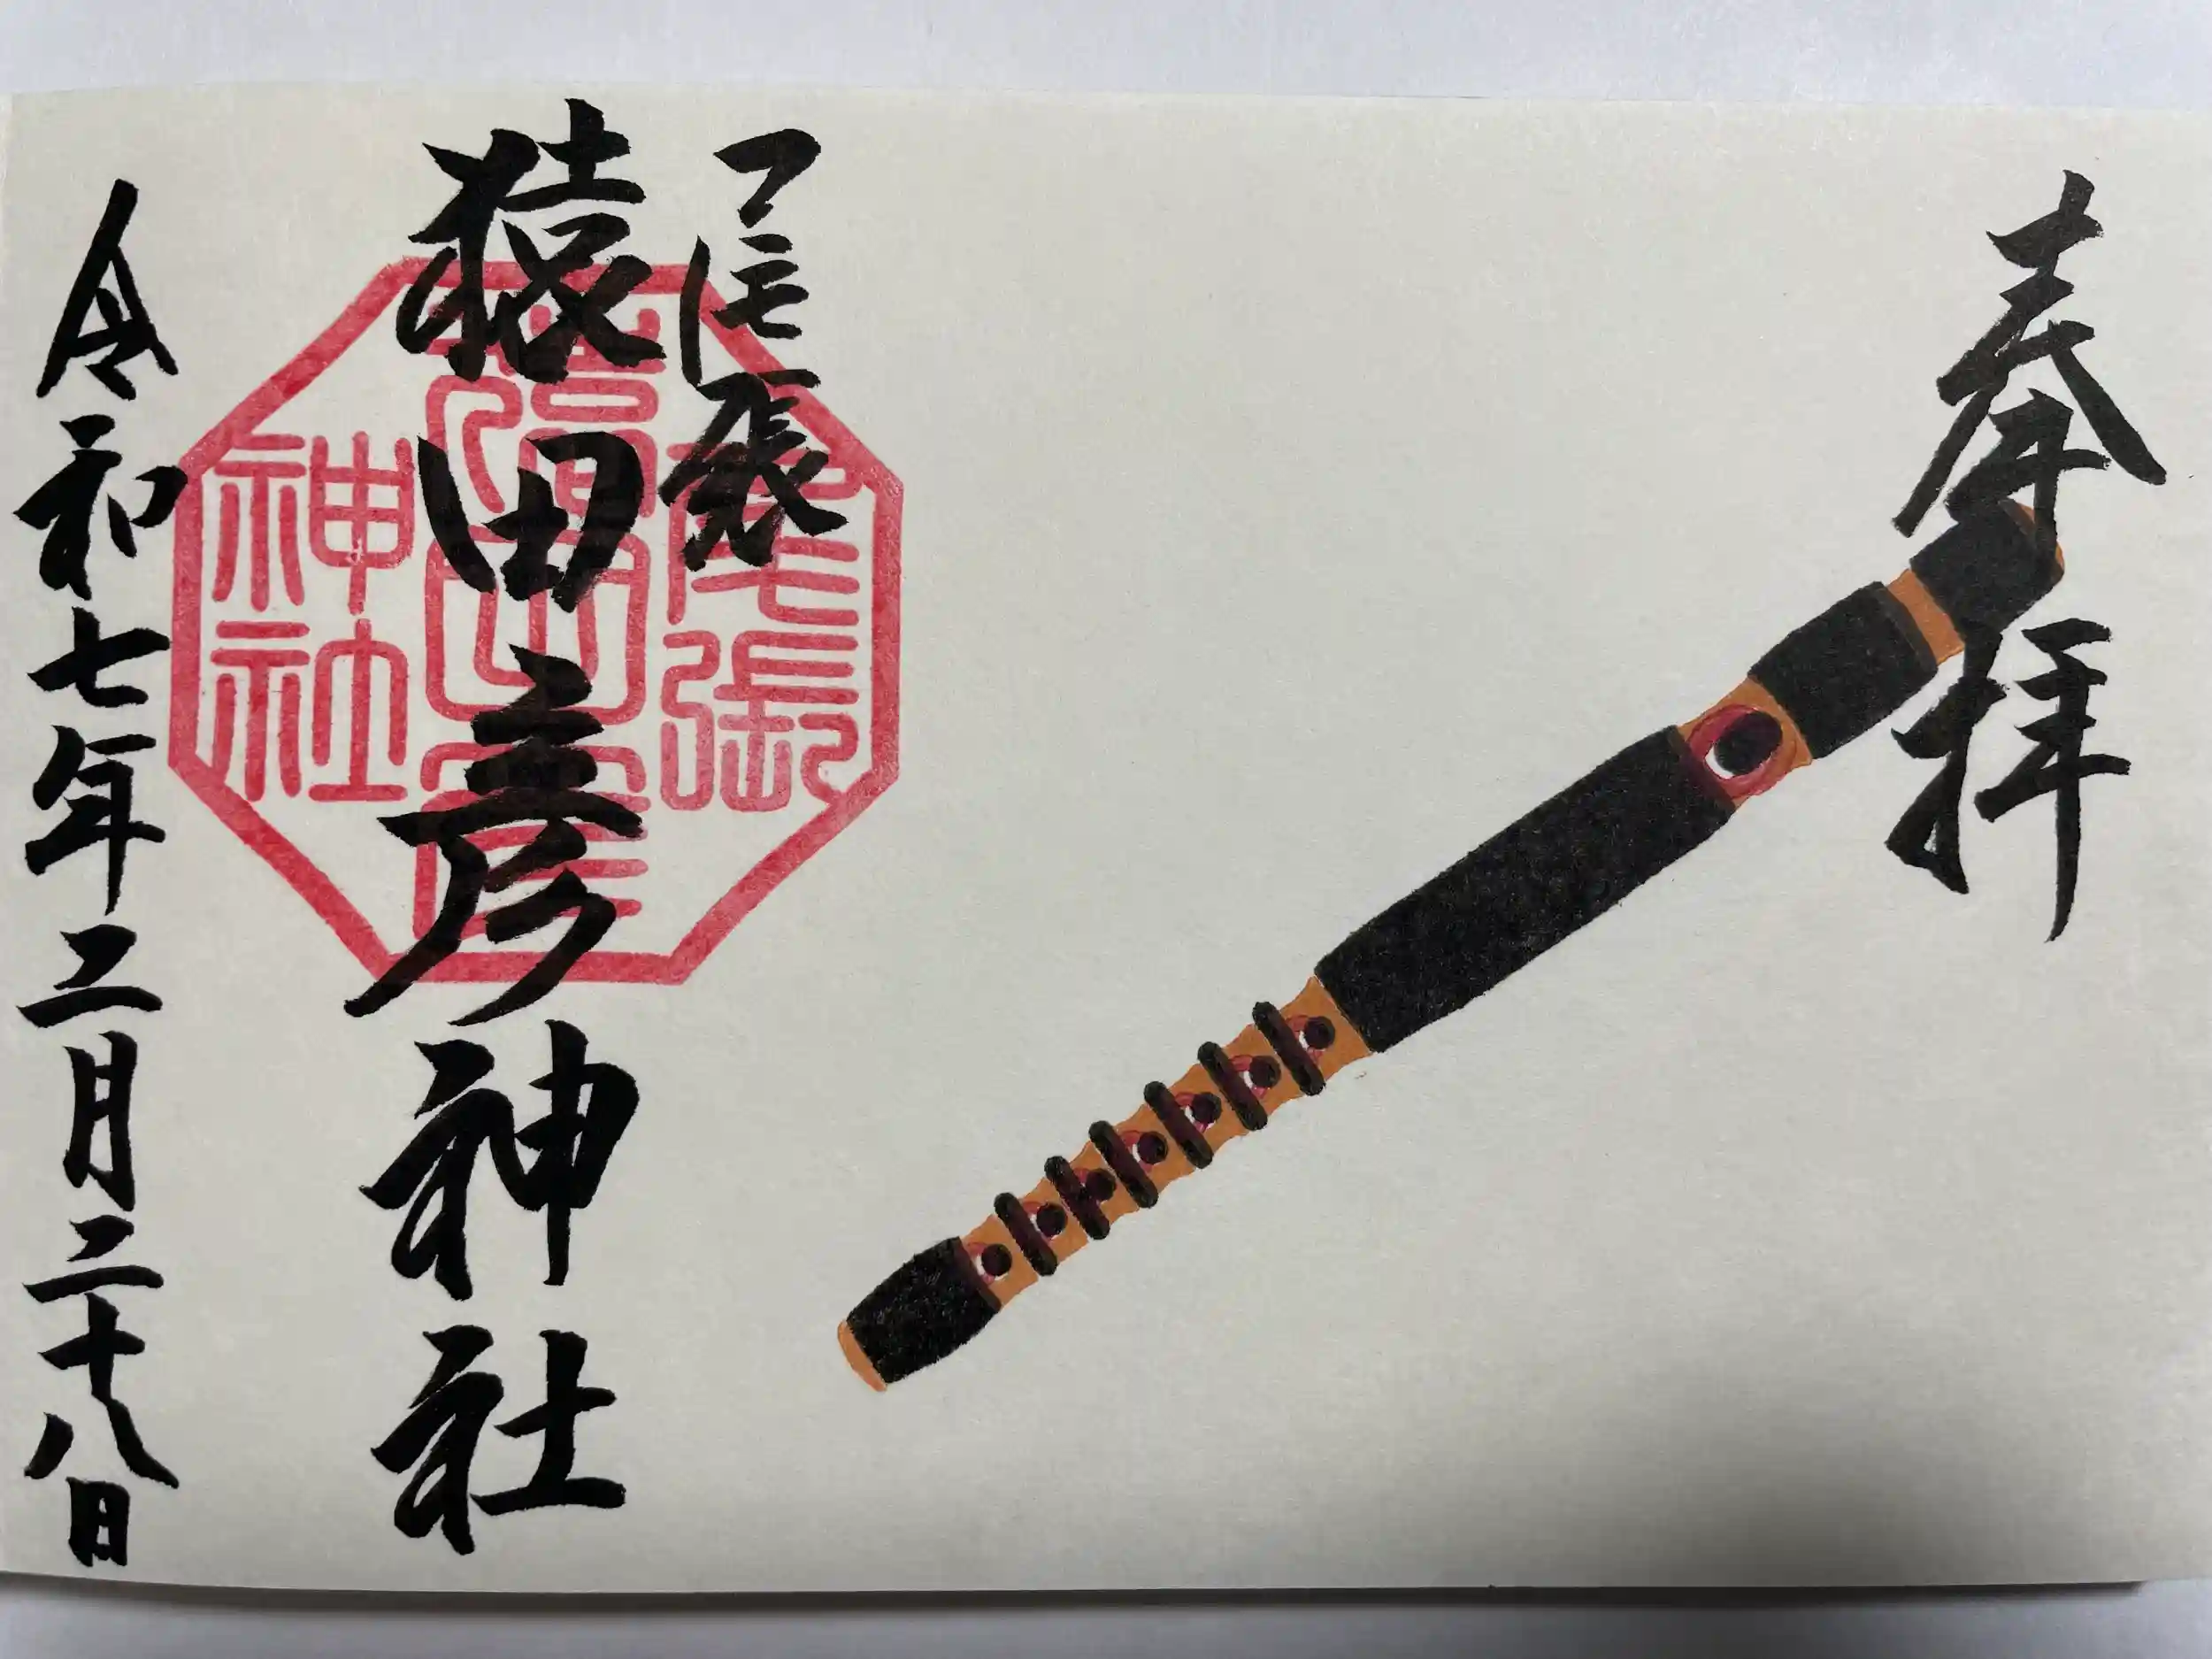 奉拝
尾張
猿田彦神社
令和七年二月二十八日
尾張
猿田彦
神社